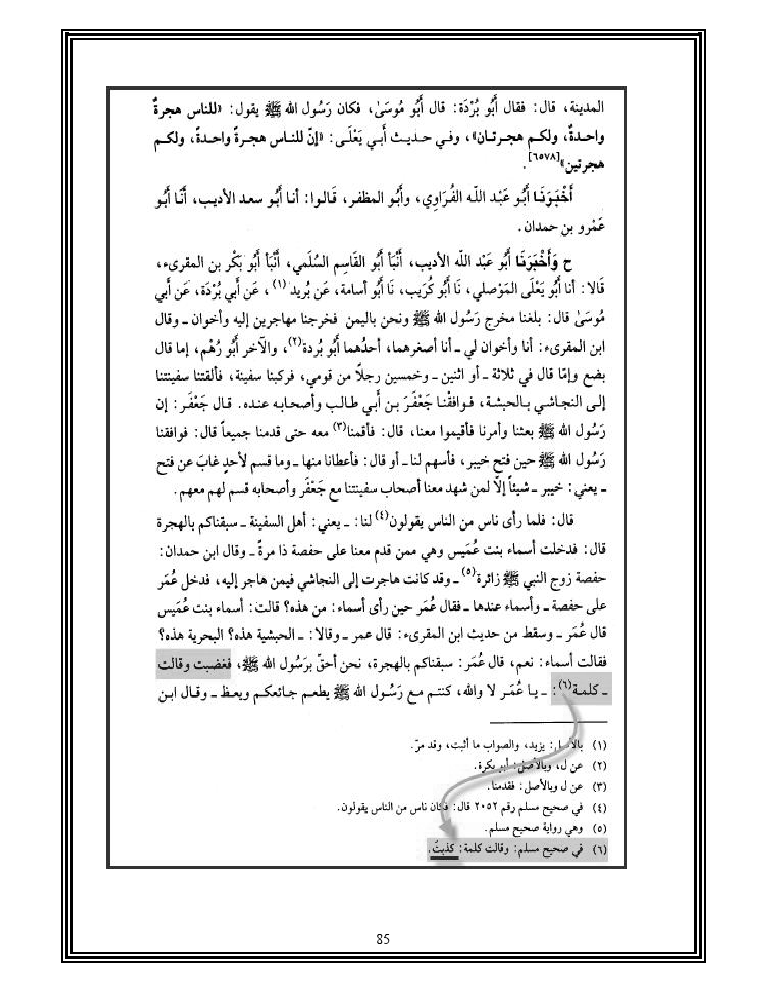 المدينة، قال: فقال أَبُو بُرْدَة: قال أَبُو مُوسَىٰ، فكان رَسُول الله ﷺ يقول: «للناس هجرةٌ
واحدةٌ، ولكم هجرتان»، وفي حديث أَبي يَعْلَى: «إنّ للناس هجرةً واحدةً، ولكم
هجرتين»[٦٥٧٨].
أَخْبَرَنَا أَبُو عَبْد اللّه الفُرَاوِي، وأَبُو المظفر، قَالوا: أنا أَبُو سعد الأديب، أَنَا أَبُو
عَمْرو بن حمدان.
ح وَأَخْبَرَنَا أَبُو عَبْد اللّه الأديب، أَنْبَأ أَبُو القَاسِم السُّلَمي، أَنْبَأ أَبُو بَكْر بن المقرىء،
قَالا: أنا أَبُو يَعْلَى المَوْصلي، نَا أَبُو كُرَيب، نَا أَبُو أسامة، عَن بُريد(١)، عَن أَبي بُرْدَة، عَن أَبي
مُوسَىٰ قال: بلغنا مخرج رَسُول الله ﷺ ونحن باليمن فخرجنا مهاجرين إليه وأخوان ـ وقال
ابن المقرىء: أنا وأخوان لي ـ أنا أصغرهما، أحدُهما أَبُو بُردة(٢)، والآخر أَبُو رُهْم، إما قال
بضع وإمّا قال في ثلاثة ـ أو اثنين ـ وخمسين رجلاً من قومي، فركبنا سفينة، فألقتنا سفينتنا
إلى النجاشي بالحبشة، فوافقْنا جَعْفَرَ بن أَبي طالب وأصحابه عنده. قال جَعْفَر: إن
رَسُول الله ﷺ بعثنا وأمرنا فأقيموا معنا، قال: فأقمنا(٣) معه حتى قدمنا جميعاً قال: فوافقنا
رَسُول الله ﷺ حين فتح خيبر، فأسهم لنا ـ أو قال: فأعطانا منها ـ وما قسم لأحدٍ غابَ عن فتح
ـ يعني: خيبر ـ شيئاً إلّا لمن شهد معنا أصحاب سفينتنا مع جَعْفَر وأصحابه قسم لهم معهم.
قال: فلما رأى ناس من الناس يقولون(٤) لنا: ـ يعني: أهل السفينة ـ سبقناكم بالهجرة
قال: فدخلت أسماء بنت عُمَيس وهي ممن قدم معنا على حفصة ذا مرةً ـ وقال ابن حمدان:
حفصة زوج النبي ﷺ زائرة(٥) ـ وقد كانت هاجرت إلى النجاشي فيمن هاجر إليه، فدخل عُمَر
على حفصة ـ وأسماء عندها ـ فقال عُمَر حين رأى أسماء: من هذه؟ قالت: أسماء بنت عُمَيس
قال عُمَر ـ وسقط من حديث ابن المقرىء: قال عمر ـ وقالا: ـ الحبشية هذه؟ البحرية هذه؟
فقالت أسماء: نعم، قال عُمَر: سبقناكم بالهجرة، نحن أحقّ برَسُول الله ﷺ، فغضبت وقالت
ـ كلمة(٦): ـ يا عُمَر لا والله، كنتم مع رَسُول الله ﷺ يطعم جائعكم ويعظ ـ وقال ابن
(١) بالأصل: يزيد، والصواب ما أثبت، وقد مرّ.
(٢) عن ل، وبالأصل: أبو بكرة.
(٣) عن ل وبالأصل: فقدمنا.
(٤) في صحيح مسلم رقم ٢٠٥٢ قال: فكان ناس من الناس يقولون.
(٥) وهي رواية صحيح مسلم.
(٦) في صحيح مسلم: وقالت كلمة: كذبتَ.
85